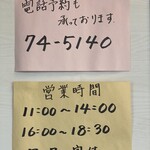 電話予約も
承っております。
74-5140
営業時間
11:00～14:00
16:00～18:30